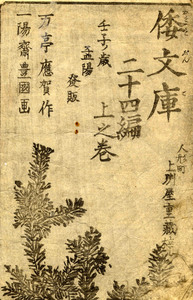 倭文庫
二十四編
上之巻
壬子歳
孟陽
發販
万亭應賀作
一陽齋豊國画
人形町
上州屋重蔵